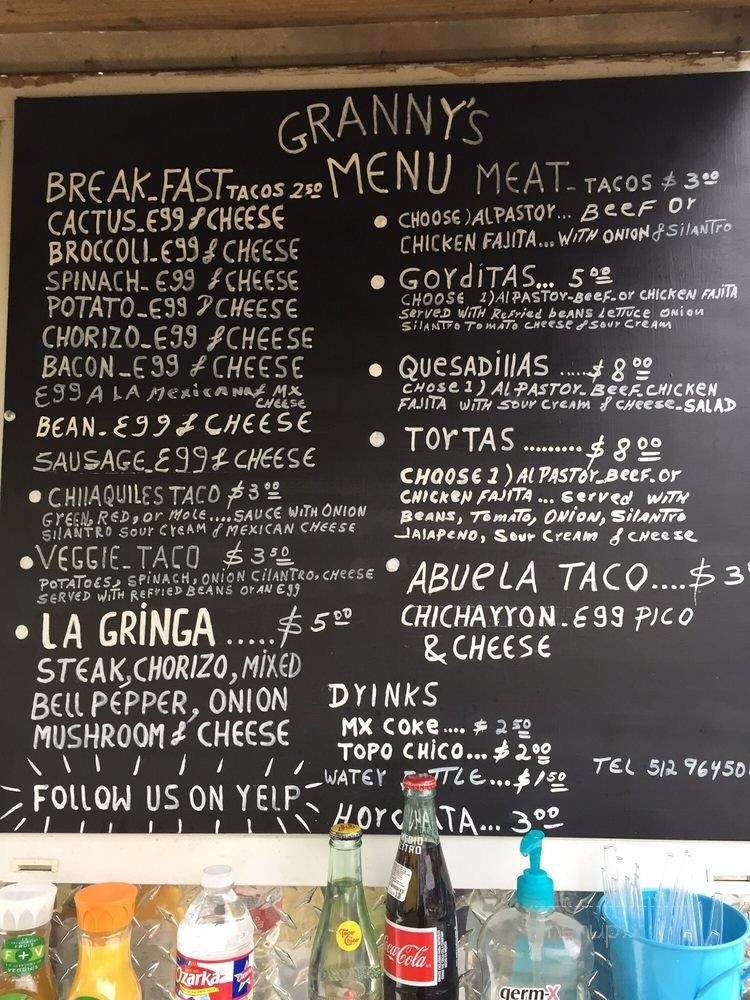 GRANNY'S
MENU
BREAK-FAST TACOS 2.50
CACTUS-Egg & CHEESE
BROCCOLI-Egg & CHEESE
SPINACH-Egg & CHEESE
POTATO-Egg & CHEESE
CHORIZO-Egg & CHEESE
BACON-Egg & CHEESE
Egg A LA Mexicana & MX
CHEESE
BEAN-Egg & CHEESE
SAUSAGE-Egg & CHEESE
CHIlAQUILES TACO $3.00
GREEN, RED, or MOLE.....SAUCE WITH ONION
SILANTRO SOUR CREAM & MEXICAN CHEESE
VEGGIE-TACO $3.50
POTATOES, SPINACH, ONION CILANTRO, CHEESE
SERVED WITH REFRIED BEANS OR AN Egg
LA GRINGA.....$5.00
STEAK, CHORIZO, MIXED
BEll PEPPER, ONION
MUSHROOM & CHEESE
FOLLOW US ON YELP
MEAT-TACOS $3.00
CHOOSE) Al PASTOr... BEEF Or
CHICKEN FAJITA... WITH ONION & SilANTRO
GORdiTAS... 5.00
CHOOSE 1) Al PASTOr-BEEF-Or CHICKEN FAJITA
SERVED WITH REFried BEANS LETTUCE ONION
SilANTRO TOMATO CHEESE & SOUR CREAM
QUESADillAS.....$8.00
CHOSE 1) Al PASTOR-BEEF-CHICKEN
FAJITA WITH SOUR CREAM & CHEESE-SALAD
TORTAS.........$8.00
CHOOSE 1) Al PASTOR-BEEF-Or
CHICKEN FAJITA... Served WITH
BEANS, TOMATO, ONION, SILANTRO
JALAPENO, SOUR CREAM & CHEESE
ABUELA TACO....$3
CHICHAYYON-Egg PICO
& CHEESE
DYINKS
MX COKE.... $2.50
TOPO CHICO... $2.00
WATEY ...$1.50
3.00
TEL 512 96450
F+V
Ozarka
Topo Chico
MEDIO
LITRO
Coca-Cola
germ-X